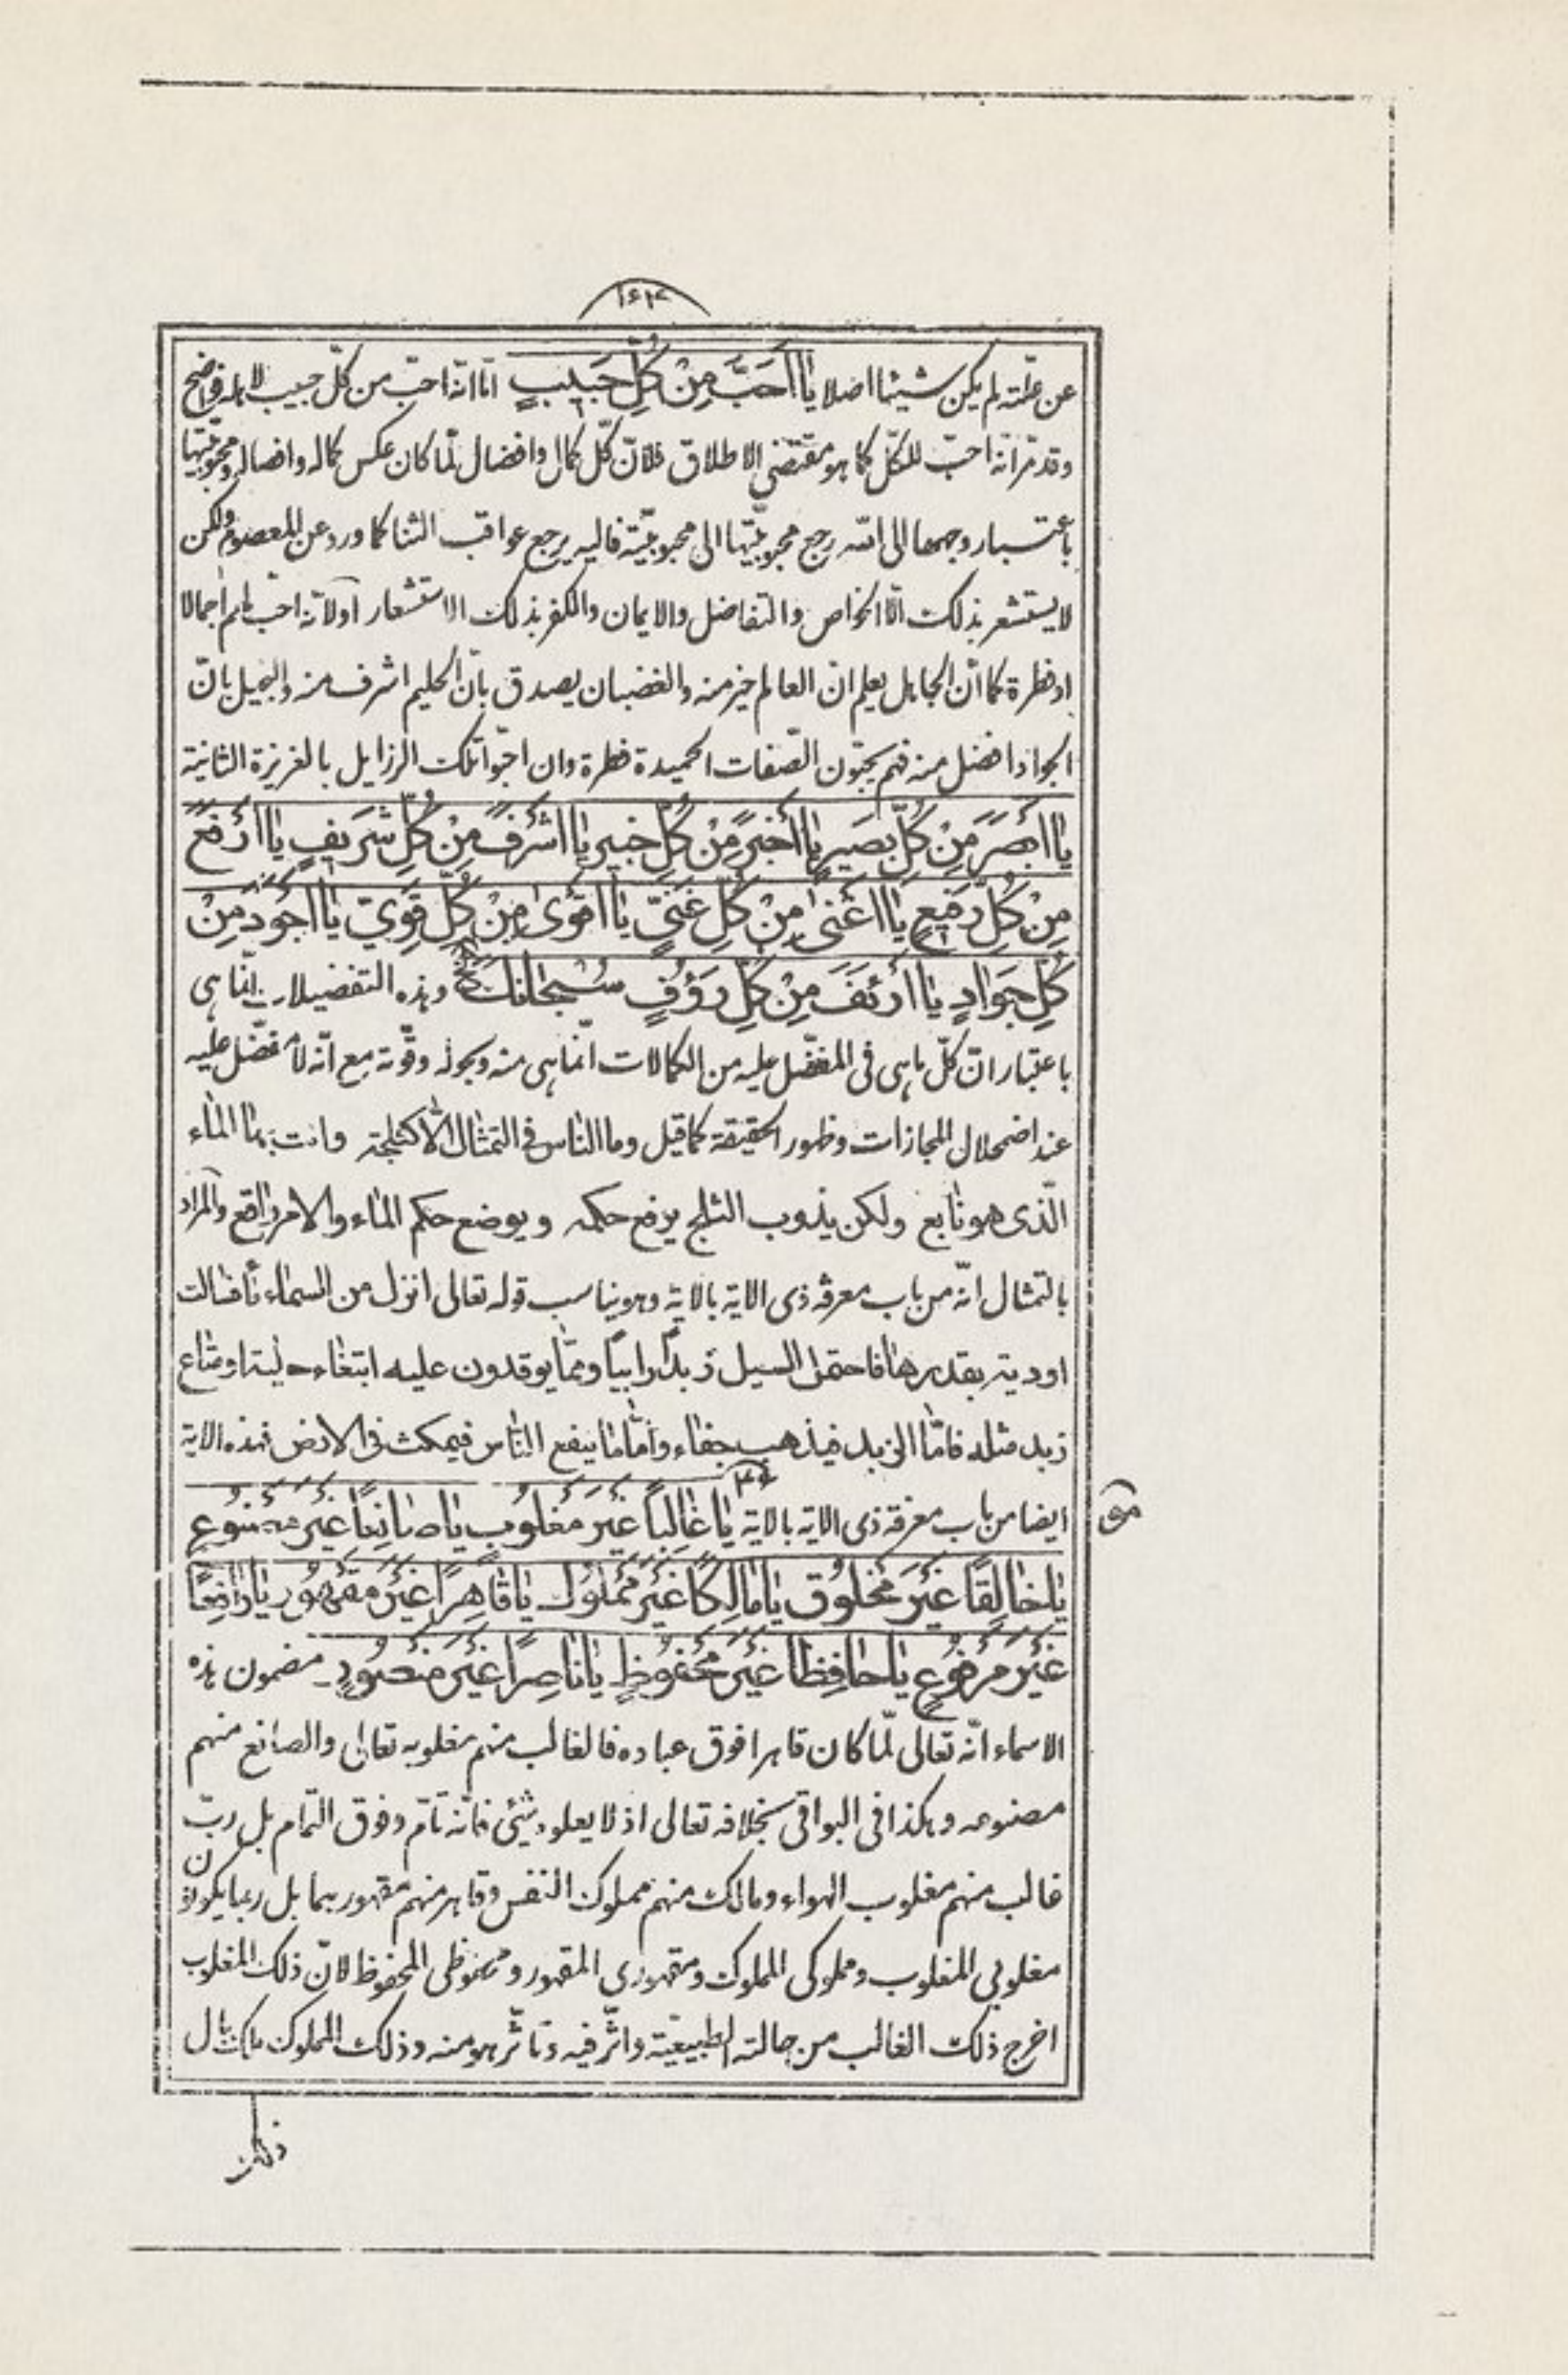 عن علّته لم يكن شيئا اصلا يا اَحَبَّ مِنْ كُلِّ حَبيبٍ امّا انّه احبّ من كلّ حبيب لاهله فواضح
وقد مرّ انّه احبّ للكلّ كما هو مقتضى الاطلاق فلانّ كلّ كمال وافضال لمّا كان عكس كماله وافضاله ومحبوبيّتها
باعتبار وجهها الى الله رجع محبوبيّتها الى محبوبيّته فاليه يرجع عواقب الثنا كما ورد عن المعصوم ولكن
لا يستشعر بذلك الّا الخواص والتفاضل والايمان والكفر بذلك الاستشعار اولانّه احبّ لهم اجمالا
او فطرة كما انّ الجاهل يعلم انّ العالم خير منه والغضبان يصدق بانّ الحليم اشرف منه والبخيل بانّ
الجواد افضل منه فهم يحبّون الصّفات الحميدة فطرة وان احبّوا تلك الرزايل بالغريزة الثانية
يا اَبْصَرَ مِنْ كُلِّ بَصيرٍ يا اَخْبَرَ مِنْ كُلِّ خَبيرٍ يا اَشْرَفَ مِنْ كُلِّ شَريفٍ يا اَرْفَعَ
مِنْ كُلِّ رَفيعٍ يا اَغْنى مِنْ كُلِّ غَنِيٍّ يا اَقْوى مِنْ كُلِّ قَوِيٍّ يا اَجْوَدَ مِنْ
كُلِّ جَوادٍ يا اَرْئَفَ مِنْ كُلِّ رَؤُفٍ سُبْحانَكَ الخ وهذه التفضيلات انّما هى
باعتبار انّ كلّ ما هى فى المفضّل عليه من الكمالات انّما هى منه وبحوله وقوّته مع انّه لا مفضّل عليه
عند اضمحلال المجازات وظهور الحقيقة كما قيل وما الناس فى التمثال الّا كثلجة وانت بها الماء
الّذى هو نابع ولكن يذوب الثلج يرفع حكمه ويوضع حكم الماء والامر واقع والمراد
بالتمثال انّه من باب معرفة ذى الاية بالاية وهو يناسب قوله تعالى انزل من السماء ماء فسالت
اودية بقدرها فاحتمل السيل زبدًا رابيًا وممّا يوقدون عليه ابتغاء حلية او متاع
زبد مثله فامّا الزبد فيذهب جفاء وامّا ما ينفع النّاس فيمكث فى الارض فهذه الاية
ايضا من باب معرفة ذى الاية بالاية يا غالِبًا غَيْرَ مَغْلُوبٍ يا صانِعًا غَيْرَ مَصْنُوعٍ
يا خالِقًا غَيْرَ مَخْلُوقٍ يا مالِكًا غَيْرَ مَمْلُوكٍ يا قاهِرًا غَيْرَ مَقْهُورٍ يا رافِعًا
غَيْرَ مَرْفُوعٍ يا حافِظًا غَيْرَ مَحْفُوظٍ يا ناصِرًا غَيْرَ مَنْصُورٍ مضمون هذه
الاسماء انّه تعالى لمّا كان قاهرا فوق عباده فالغالب منهم مغلوبه تعالى والصانع منهم
مصنوعه وهكذا فى البواقى بخلافه تعالى اذ لا يعلوه شئ فانّه تامّ وفوق التمام بل ربّ
غالب منهم مغلوب الهواء ومالك منهم مملوك النفس وقاهر منهم مقهور بهما بل ربما يكون
مغلوبى المغلوب ومملوكى المملوك ومقهورى المقهور ومحفوظى المحفوظ لانّ ذلك المغلوب
اخرج ذلك الغالب من حالته الطبيعيّة واثّر فيه وتاثّر هو منه وذلك المملوك مالك بال
ذلك